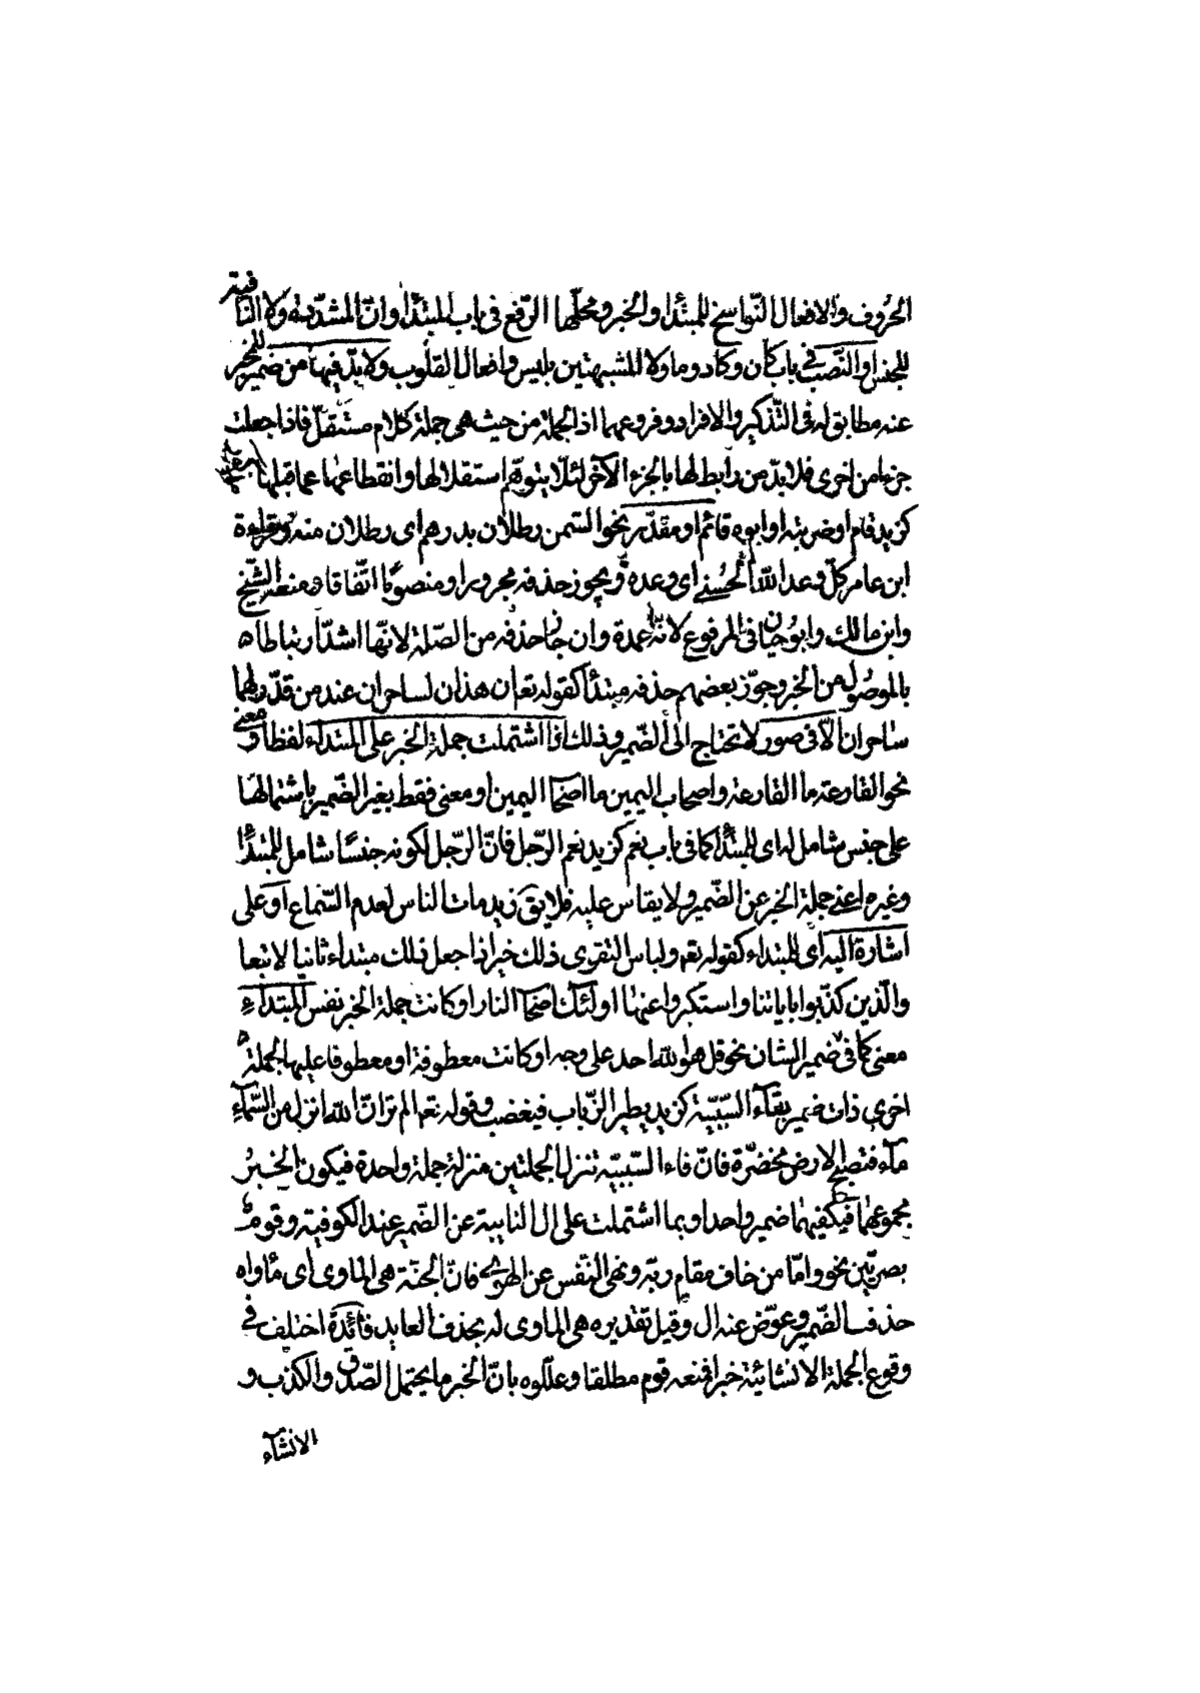 الحروف والافعال النّواسخ للمبتدأ والخبر ومحلّها الرّفع فى باب المبتدأ وانّ المشدّدة ولا النّافية
للجنس والنّصب فى باب كان وكاد وما ولا المشبهتين بليس وافعال القلوب ولا بدّ فيها من ضمير للمخبر
عنه مطابق له فى التّذكير والافراد وفروعهما اذ الجملة من حيث هى جملة كلام مستقلّ فاذا جعلت
جزءا من اخرى فلا بدّ من رابط لها بالجزء الآخر لئلّا يتوهّم استقلالها وانقطاعها عمّا قبلها
كزيد قام او ضربته او ابوه قائم او مقدّر نحو السّمن رطلان بدرهم اى رطلان منه وقراءة
ابن عامر كلّ وعد اللّه الحُسنى اى وعده ويجوز حذفه مجرورا ومنصوبًا اتّفاقا ومنعه الشّيخ
وابن مالك وابوحيان فى المرفوع لانّه عمدة وان جاز حذفه من الصّلة لانّها اشدّ ارتباطا
بالموصول من الخبر وجوّز بعضهم حذفه مبتدأ كقوله تع ان هذان لساحران عند من قدّر لهما
ساحران الّا فى صور لا تحتاج الى الضّمير وذلك اذا اشتملت جملة الخبر على المبتداء لفظا ومعنى
نحو القارعة ما القارعة واصحاب اليمين ما اصحا اليمين او معنى فقط بغير الضّمير باشتمالها
على جنس شامل له اى للمبتدأ كما فى باب نعم كزيد نعم الرّجل فانّ الرّجل لكونه جنسًا شامل للمبتدأ
وغيره اغنى جملة الخبر عن الضّمير ولا يقاس عليه فلا يق زيد مات الناس لعدم السّماع او على
اشارة اليه اى للمبتداء كقوله تع ولباس التقوى ذلك خير اذا جعل ذلك مبتداء ثانيا لا تبعا
والّذين كذّبوا باياتنا واستكبروا عنها اولئك اصحا النار او كانت جملة الخبر نفس المبتداء
معنى كما فى ضمير الشان نحو قل هو اللّه احد على وجه او كانت معطوفة او معطوفا عليها لجملة
اخرى ذات ضمير بفآء السّببيّة كزيد يطير الذّباب فيغضب وقوله تع الم تر انّ اللّه انزل من السّمآء
مآء فتصبح الارض مخضرّة فانّ فاء السّببيّة تنزل الجملتين منزلة جملة واحدة فيكون الخبرُ
مجموعهما فيكفيهما ضمير واحد او بما اشتملت على ال النايبة عن الضّمير عند الكوفية وقوم
بصريّين نحو وامّا من خاف مقام ربّه ونهى النّفس عن الهوى فانّ الجنّة هى الماوى اى مأواه
حذف الضّمير وعوّض عنه ال وقيل تقديره هى الماوى له بحذف العايد فائدة اختلف فى
وقوع الجملة الانشائيّة خبرا فمنعه قوم مطلقا وعلّلوه بانّ الخبر ما يحتمل الصّدق والكذب و
الانشآء